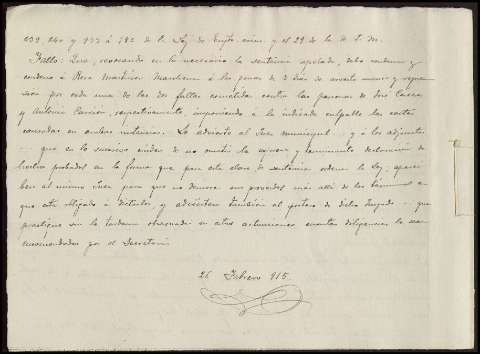 239, 240 y 973 à 982 de la Ley de Enjto. crim. y el 29 de la de J. m.
Fallo: Que, revocando en lo necesario la sentencia apelada, debo condenar y
condeno á Rosa Martinon á las penas de 3 dias de arresto menor y repren
sion por cada una de las dos faltas cometidas contra las personas de José
y Antonio Carrión, respectivamente, imponiendo á la indicada culpable las costas
causadas en ambas instancias. Se advierte al Juez municipal y á los adjuntos
que en lo sucesivo cuiden de no omitir la expresa y terminante declaración de
hechos probados en la forma que para esta clase de sentencias ordena la Ley;
ben al mismo Juez para que no demore sus proveidos mas allá de los términos a
que está obligado á dictarlos y adviertase tambien al de dicho Juzgado que
practique sin la tardanza observada en estas actuaciones cuantas diligencias le sean
encomendadas por el Secretario.
26 Febrero 915.